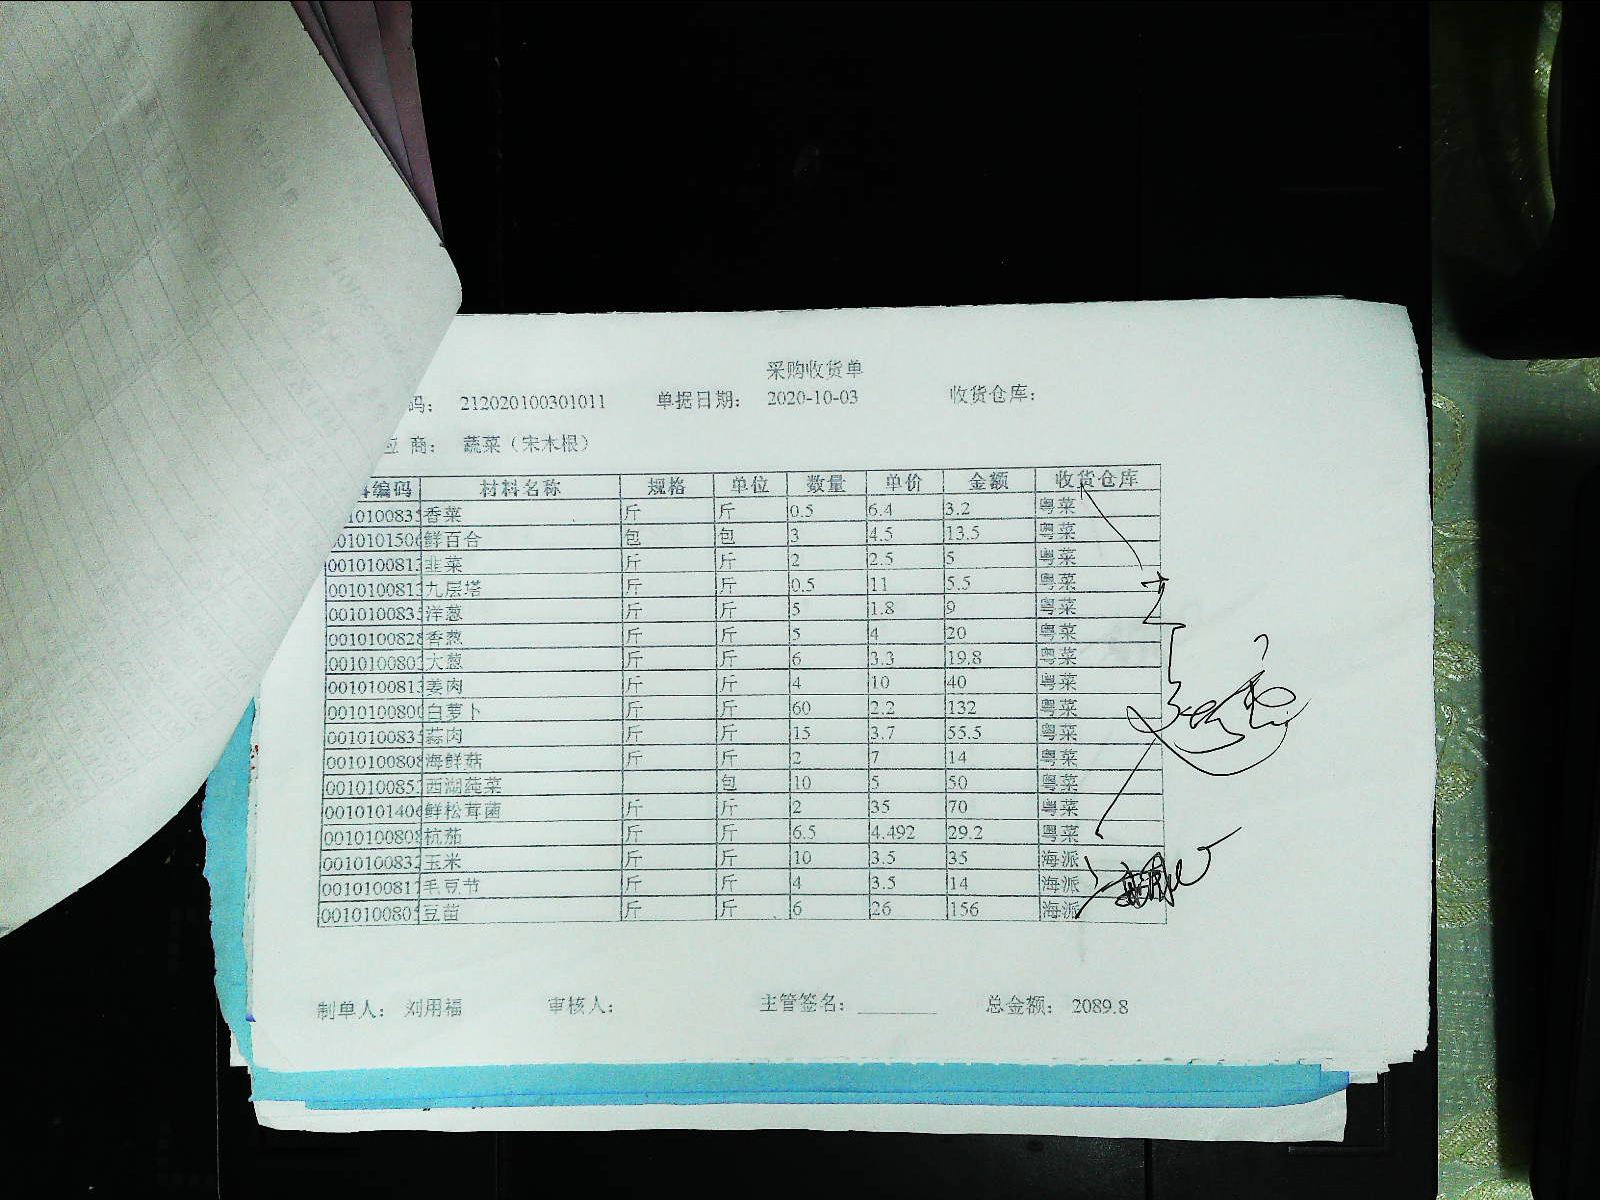 采购收货单
码： 212020100301011 单据日期： 2020-10-03 收货仓库：
应 商： 蔬菜（宋木根）
编码 材料名称 规格 单位 数量 单价 金额 收货仓库
010100835 香菜 斤 斤 0.5 6.4 3.2 粤菜
010101506 鲜百合 包 包 3 4.5 13.5 粤菜
0010100813 韭菜 斤 斤 2 2.5 5 粤菜
0010100813 九层塔 斤 斤 0.5 11 5.5 粤菜
0010100835 洋葱 斤 斤 5 1.8 9 粤菜
0010100828 香葱 斤 斤 5 4 20 粤菜
0010100803 大葱 斤 斤 6 3.3 19.8 粤菜
0010100813 姜肉 斤 斤 4 10 40 粤菜
0010100800 白萝卜 斤 斤 60 2.2 132 粤菜
0010100835 蒜肉 斤 斤 15 3.7 55.5 粤菜
0010100808 海鲜菇 斤 斤 2 7 14 粤菜
0010100853 西湖莼菜 包 10 5 50 粤菜
0010101406 鲜松茸菌 斤 斤 2 35 70 粤菜
0010100808 杭茄 斤 斤 6.5 4.492 29.2 粤菜
0010100832 玉米 斤 斤 10 3.5 35 海派
0010100817 毛豆节 斤 斤 4 3.5 14 海派
0010100805 豆苗 斤 斤 6 26 156 海派
制单人： 刘用福 审核人： 主管签名： 总金额： 2089.8